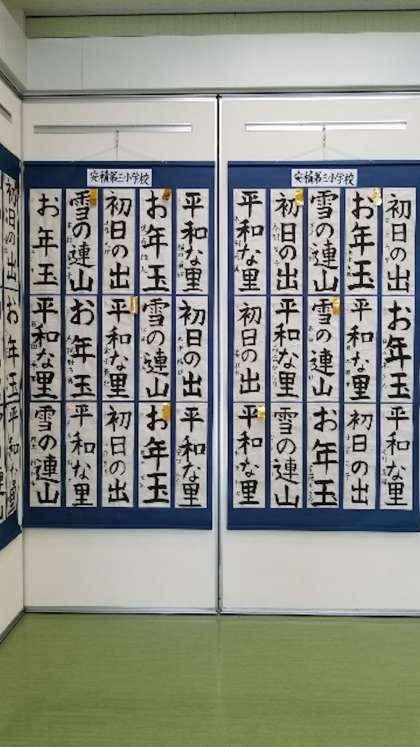 初日の出
お年玉
平和な里
安積第三小学校
お年玉
雪の連山
初日の出
お年玉
平和な里
平和な里
お年玉
平和な里
雪の連山
初日の出
雪の連山
平和な里
初日の出
お年玉
平和な里
安積第三小学校
平和な里
初日の出
雪の連山
お年玉
初日の出
初日の出
平和な里
雪の連山
平和な里
お年玉
平和な里
雪の連山
お年玉
初日の出
平和な里